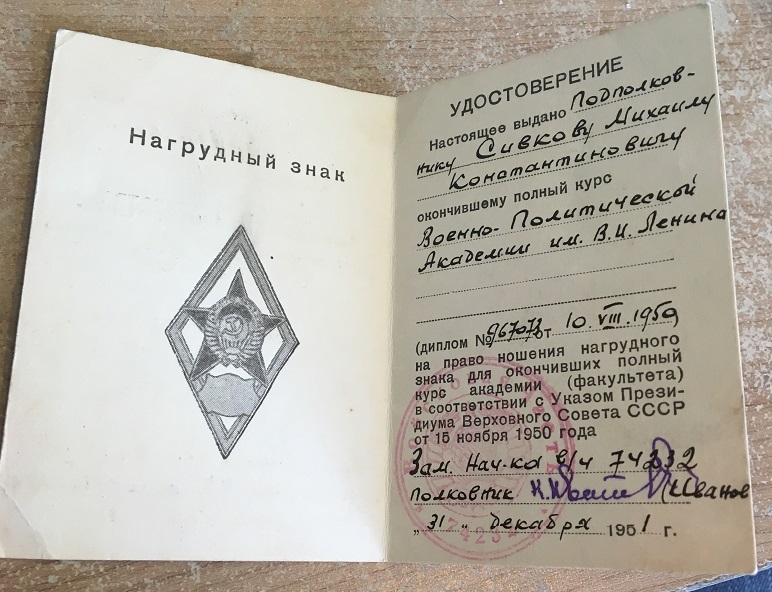 Нагрудный знак
УДОСТОВЕРЕНИЕ
Настоящее выдано Подполков-
нику Сивкову Михаилу
Константиновичу
окончившему полный курс
Военно-Политической
Академии им. В.И. Ленина
(диплом № 967072 от 10.VIII.1950)
на право ношения нагрудного
знака для окончивших полный
курс академии (факультета)
в соответствии с Указом Прези-
диума Верховного Совета СССР
от 15 ноября 1950 года
Зам. Нач-ка в/ч 74232
полковник Иванов
„31" декабря 1951 г.
74232